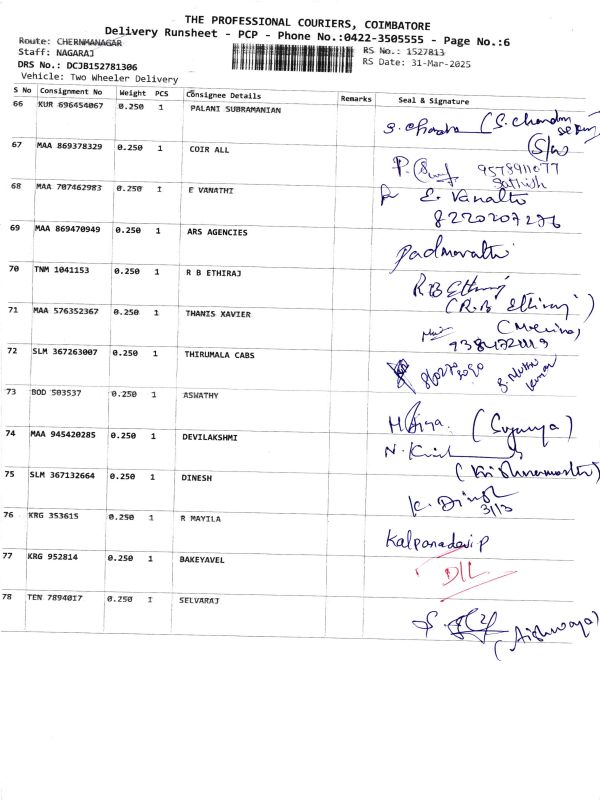 THE PROFESSIONAL COURIERS, COIMBATORE
Delivery Runsheet - PCP - Phone No.:0422-3505555 - Page No.:6
Route: CHERNMANAGAR
Staff: NAGARAJ
RS No.: 1527813
DRS No.: DCJB152781306
RS Date: 31-Mar-2025
Vehicle: Two Wheeler Delivery
S No Consignment No Weight PCS Consignee Details Remarks Seal & Signature
66 KUR 696454067 0.250 1 PALANI SUBRAMANIAN
67 MAA 869378329 0.250 1 COIR ALL
9578911077
Sathish
68 MAA 707462983 0.250 1 E VANATHI
E. Vanathi
8220207276
69 MAA 869470949 0.250 1 ARS AGENCIES
Padmavathi
70 TNM 1041153 0.250 1 R B ETHIRAJ
RB Ethiraj
(R.B Ethiraj)
71 MAA 576352367 0.250 1 THANIS XAVIER
72 SLM 367263007 0.250 1 THIRUMALA CABS
73 BOD 503537 0.250 1 ASWATHY
(Suganya)
74 MAA 945420285 0.250 1 DEVILAKSHMI
75 SLM 367132664 0.250 1 DINESH
K. Dinesh
31/3
76 KRG 353615 0.250 1 R MAYILA
Kalpanadevi P
77 KRG 952814 0.250 1 BAKEYAVEL
D/L
78 TEN 7894017 0.250 1 SELVARAJ
(Aishwarya)